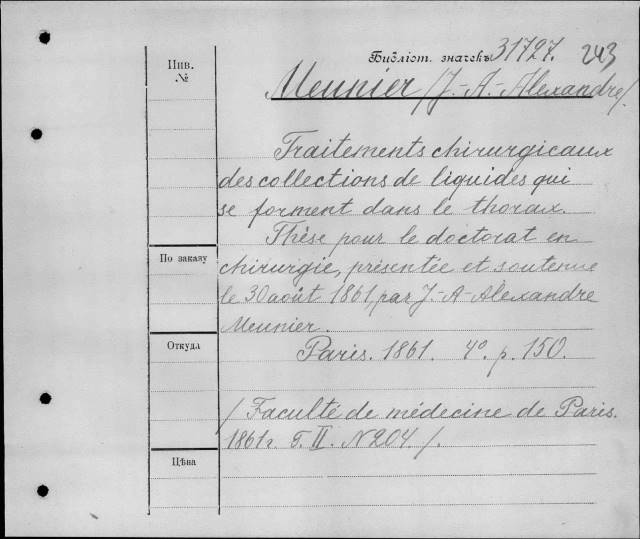 Библіот. значекъ 31727. 243
Инв. №
Meunier /J.-A.-Alexandre/.
Traitements chirurgicaux
des collections de liquides qui
se forment dans le thorax.
Thèse pour le doctorat en
По заказу
chirurgie, présentée et soutenue
le 30 août 1861, par J.-A-Alexandre
Meunier.
Откуда
Paris. 1861. 4º. p. 150.
/Faculté de médecine de Paris.
1861г. T. II. N 204/.
Цѣна